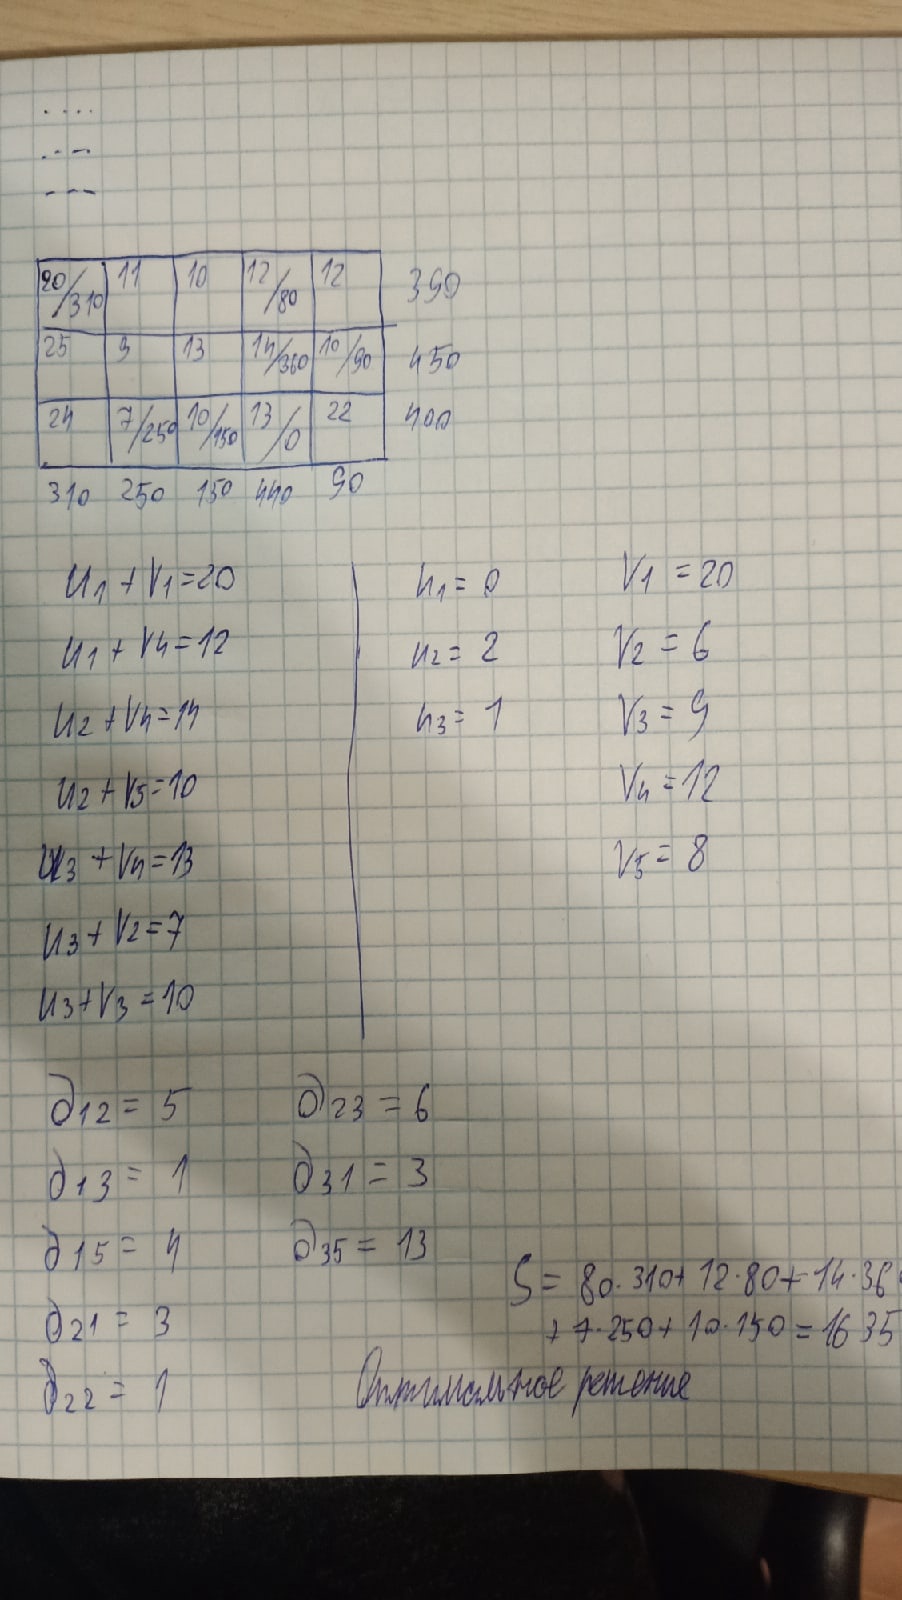 20/310 11 10 12/80 12 390
25 9 13 14/360 10/90 450
24 7/250 10/150 13/0 22 400
310 250 150 440 90
u1 + v1 = 20
u1 + v4 = 12
u2 + v4 = 14
u2 + v5 = 10
u3 + v4 = 13
u3 + v2 = 7
u3 + v3 = 10
u1 = 0 v1 = 20
u2 = 2 v2 = 6
u3 = 1 v3 = 9
v4 = 12
v5 = 8
∂12 = 5 ∂23 = 6
∂13 = 1 ∂31 = 3
∂15 = 4 ∂35 = 13
∂21 = 3
∂22 = 1
S = 80·310+12·80+14·36
+7·250+10·150=1635
Оптимальное решение